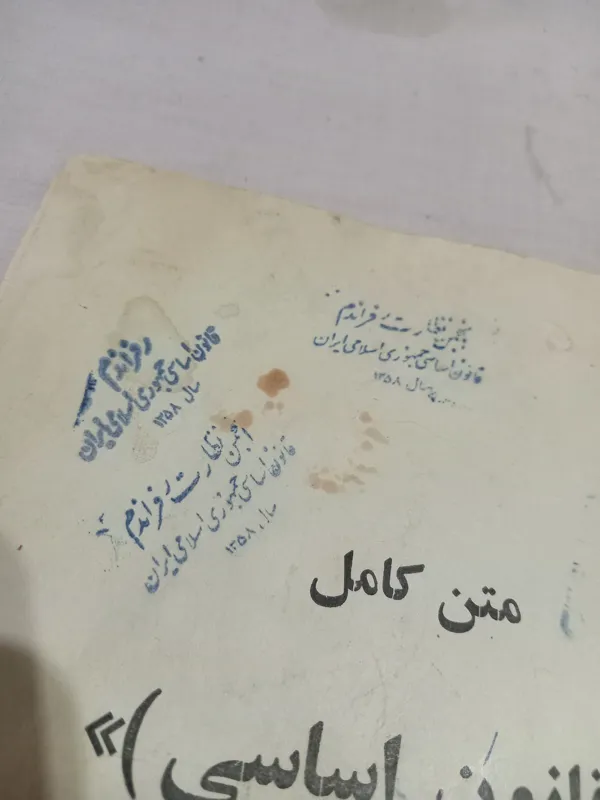 انجمن نظارت رفراندم
قانون اساسی جمهوری اسلامی ایران
سال ۱۳۵۸
رفراندم
قانون اساسی جمهوری اسلامی ایران
سال ۱۳۵۸
انجمن نظارت رفراندم
قانون اساسی جمهوری اسلامی ایران
سال ۱۳۵۸
متن کامل
قانون اساسی)»